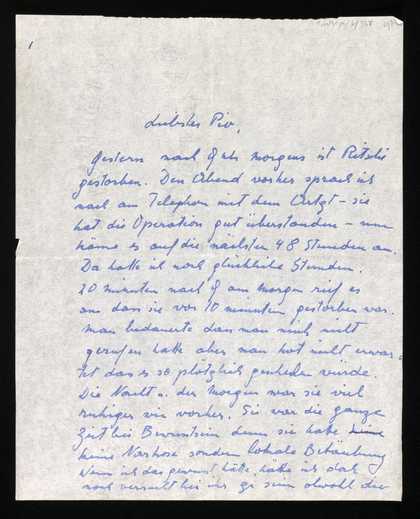 1
Liebster Pio,
Gestern nach 8 Uhr morgens ist Pitschi
gestorben. Den Abend vorher sprach ich
noch am Telephon mit dem Artzt – sie
hat die Operation gut überstanden – nun
käme es auf die nächsten 48 Stunden an.
Da hatte ich noch glückliche Stunden.
20 minuten nach 8 am Morgen rief es
an dass sie vor 10 minuten gestorben war.
Man bedauerte dass man mich nicht
gerufen hatte aber man hat nicht erwar-
tet dass es so plötzlich geschehen würde.
Die Nacht u. der Morgen war sie viel
ruhiger wie vorher. Sie war die ganze
Zeit bei Bewusstsein denn sie hatte
keine Narkose sondern lokale Betäubung
Wenn ich das gewusst hätte, hätte ich doch
noch versucht bei ihr zu sein obwohl der